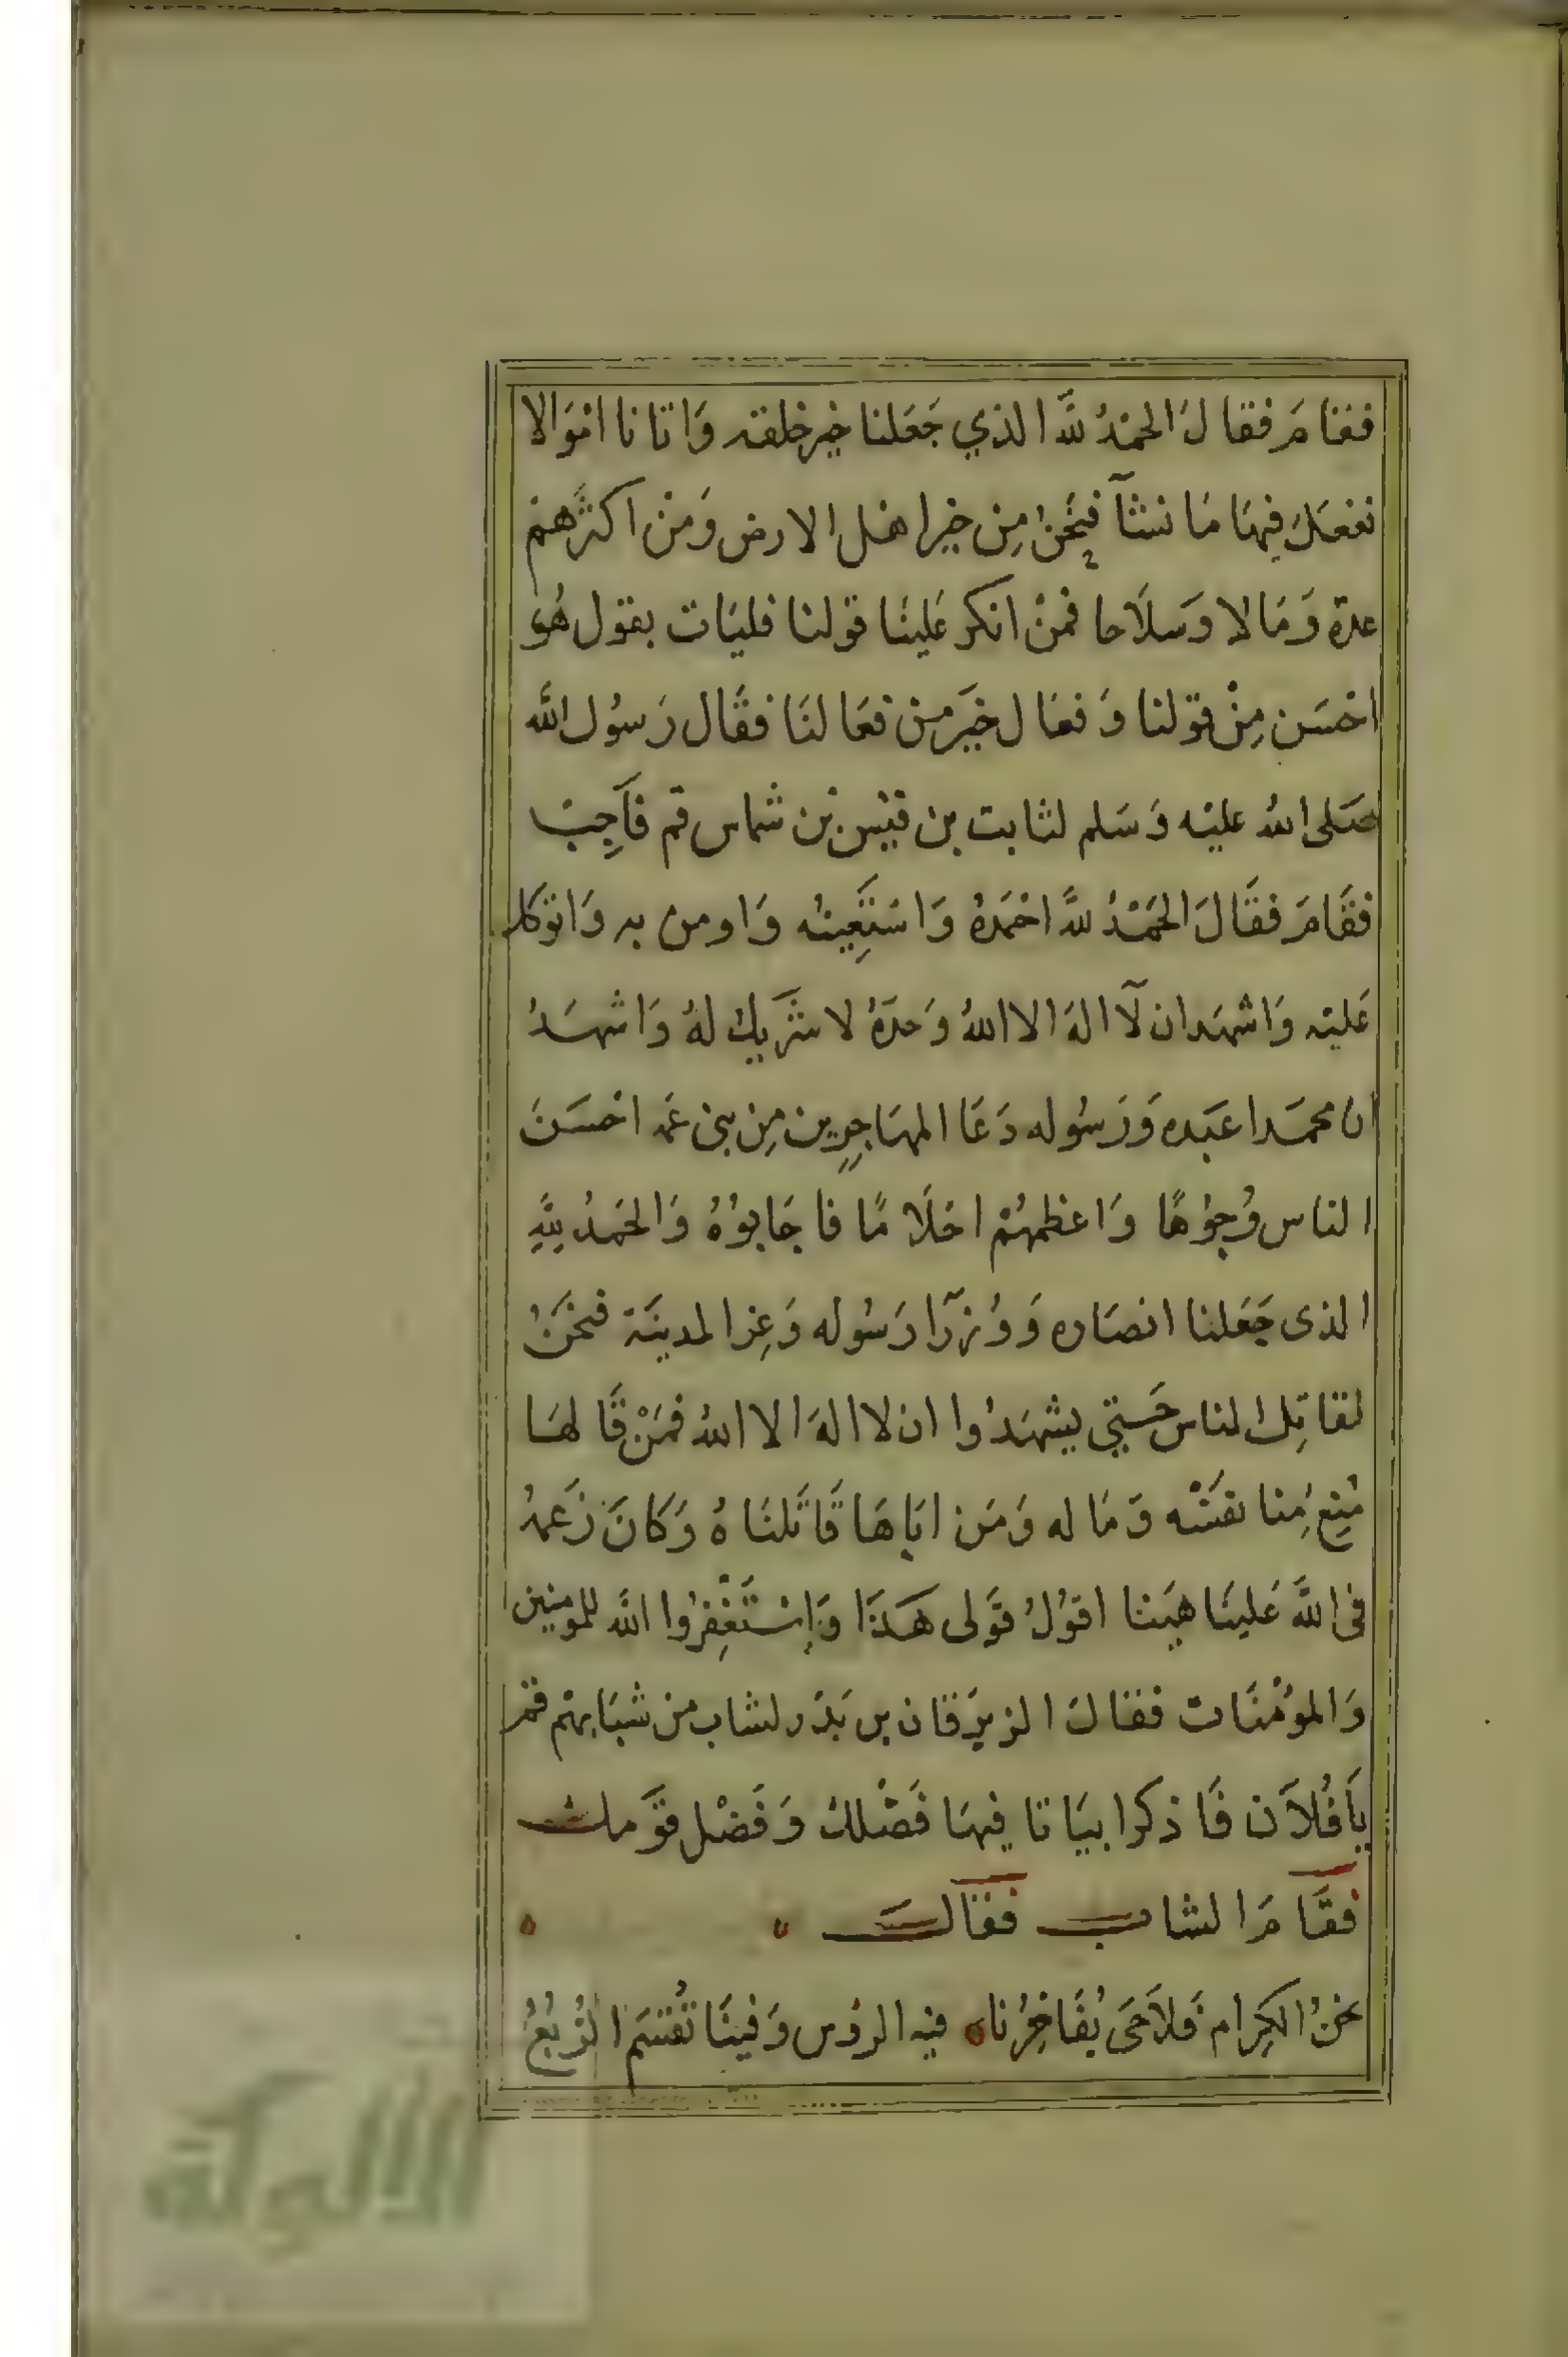 فقامَ فقالَ الحمْدُ للَّه الذي جَعَلنا خير خلقه وَاتانا امْوَالا
نفعَلُ فيهَا مَا نشآ فنَحْنُ مِن خير اهْل الارض وَمنْ اكثَرهمْ
عدة وَمَالا وَسلَاحا فمنْ انكر عَلينَا قولنا فليَات بقول هُو
احْسَن مِنْ قولنا وَفعَال خيَر من فعَالنَا فقَال رَسوُل الله
صَلى اللهُ عليْه وَسَلم لثابت بن قيْس بْن شماس قم فاَجِبْ
فقَامَ فقَالَ الحَمْدُ للَّه احْمَدهُ وَاسْتَعِينُه وَاومن به وَاتوَكل
عَليْه وَاشهَد ان لآ الهَ الا اللهُ وَحدَهُ لا شَريك لهُ وَاشهَدُ
ان محمَدا عَبَده وَرَسُوله دَعَا المهَاجِرِين مِن بنى عَمه احْسَنَ
الناس وُجوُهًا وَاعظمهُمْ احْلَامًا فاجَابوُهُ وَالحَمدُ لِلَّهِ
الذى جَعَلنا انصَاره وَوُزرآ رَسُوله وَعِزا لدينَه فنحْنُ
نقاتِل الناس حَتي يشهَدُوا ان لا الهَ الا اللهُ فمَنْ قَالهَا
مُنِعَ مِنا نفسَْه وَمَاله وَمَن ابَاهَا قَاتَلنَاهُ وَكانَ رَغمهُ
فى اللَّه عَلينَا هيَنا اقوُلُ قوَلى هَذَا وَاسْتَغْفِرُوا الله للمومنين
وَالموُمْنَات فقالَ الزبرَقان بن بَدْر لشاب من شبَابهمْ قم
يَا فُلاَن فَاذكر ابيَاتا فيهَا فَضْلك وَفَضْل قوَمك
فقَامَ الشاب فقَالَ
نحنُ الكِرام فَلاَ حَى يُفَاخِرُنا فيه الروُس وَفينَا تُقتسَم الرُبُعُ
الألوكة